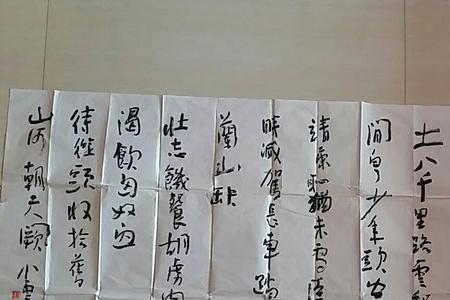 土八千里路雲
閒白少年頭空
靖康恥猶未雪臣
時滅駕長車踏
蘭山缺
壯志饑餐胡虜肉
渴飲匈奴血
待從頭收拾舊
山河朝天闕小重